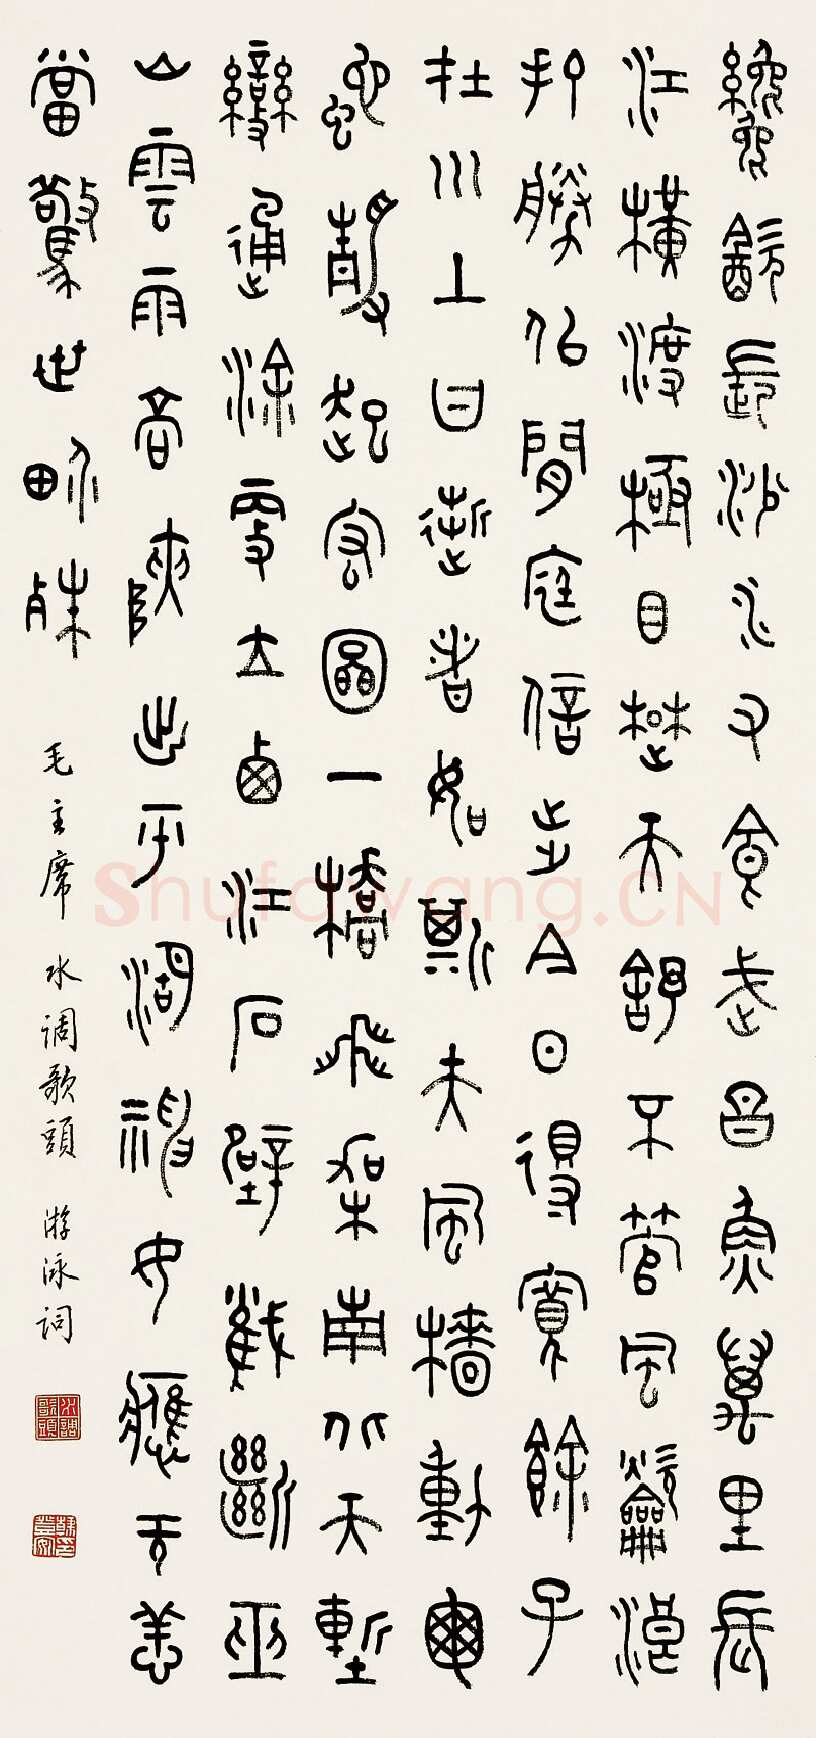 纔飲長沙水又食武昌魚萬里長
江橫渡極目楚天舒不管風吹浪
打勝似閒庭信步今日得寬餘子
在川上曰逝者如斯夫風檣動龜
蛇靜起宏圖一橋飛架南北天塹
變通途更立西江石壁截斷巫
山雲雨高峽出平湖神女應无恙
當驚世界殊
毛主席 水调歌頭 游泳词
水調歌頭
Shufawang.CN